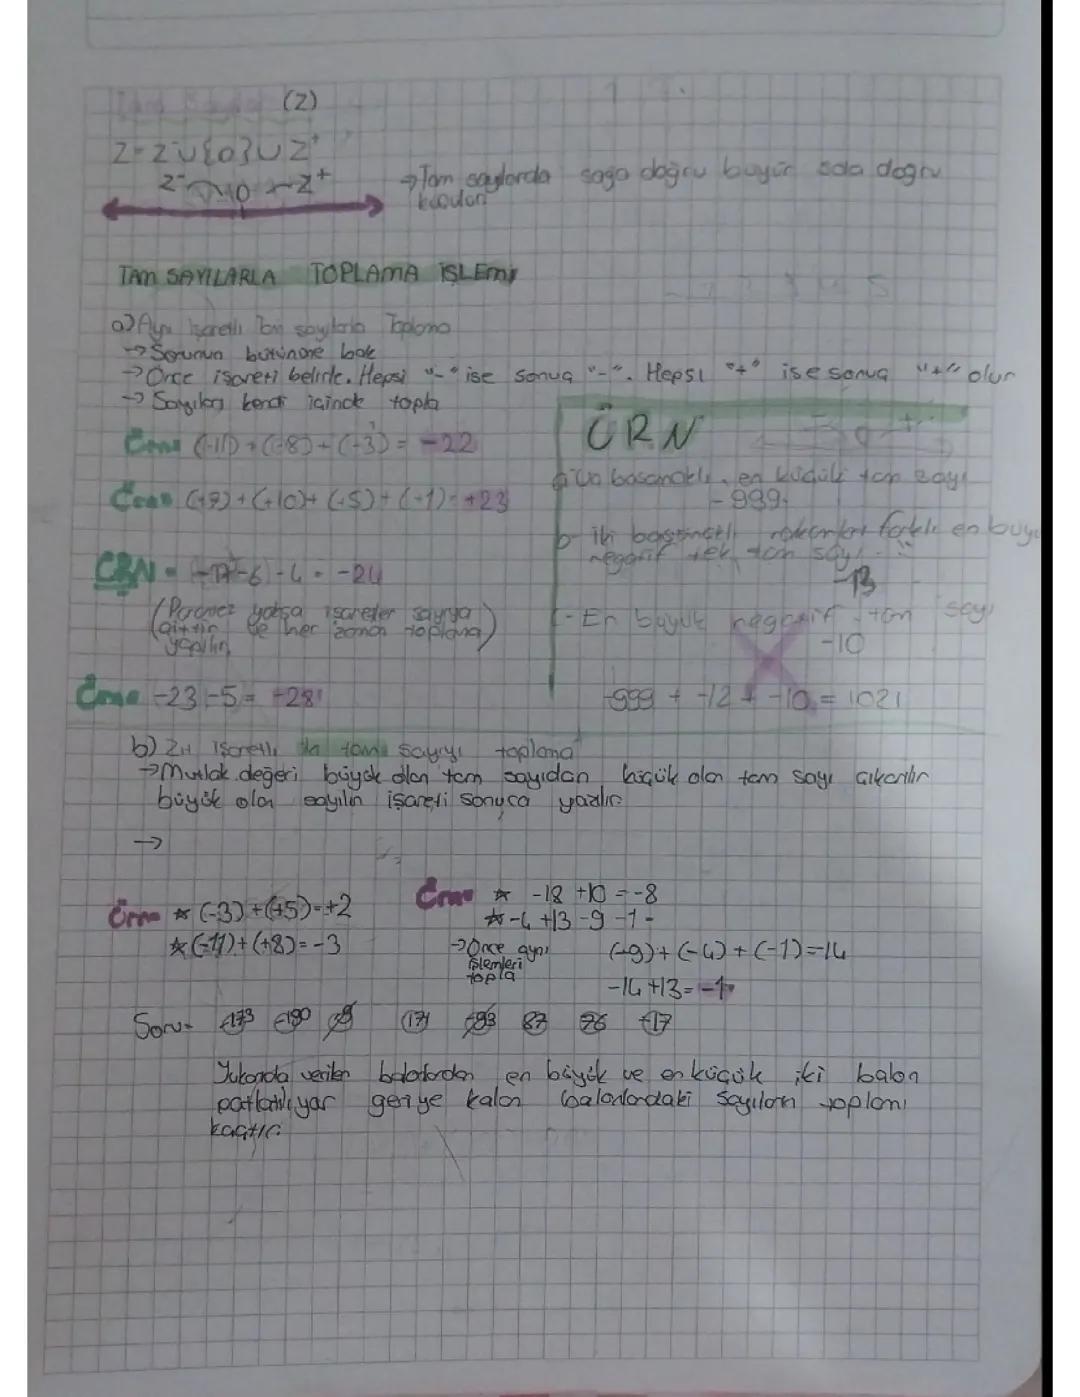 (Z)
Z=Z⁻∪{0}∪Z⁺
Z⁻ 0 Z⁺
→Tam sayılarda sağa doğru büyür sola doğru
TAM SAYILARLA TOPLAMA İŞLEMİ
a) Aynı işaretli Toplama
→Sorunun bütününe bak
→Önce işareti belirle. Hepsi "-" ise sonuç "-". Hepsi "+" ise sonuç "+" olur
→Sayıları kendi içinde topla
Örn: (-11)+(-8)+(-3)= -22
(+10)+(+5)+ = +23
ÖRN= -6)-4= -24
(Parantez yoksa işaretler sayıya
aittir ve her zaman toplama
yapılır)
Örn: -23-5= -28
ÖRN
basamaklı en küçük tam sayı
-999
b- iki basamaklı rakamları farklı en büyük
negatif tek tam sayı
-13
- En büyük negatif tam sayı
-10
-999 + -12 + -10 = 1021
b) Zıt işaretli iki tam sayıyı toplama
→Mutlak değeri büyük olan tam sayıdan küçük olan tam sayı çıkarılır
büyük olan sayının işareti sonuca yazılır
→
Örn ☆ (-3)+(+5)=+2
☆(-11)+(+8)=-3
Örn ☆ -18 +10 =-8
☆-4 +13 -9 -1 =
→Önce aynı
işlemleri
topla
(-9)+(-4)+(-1)=-14
-14+13= -1
Soru= 87 76 +17
Yukarıda verilen balonlardan en büyük ve en küçük iki balon
patlatılıyor geriye kalan balonlardaki sayıların toplamı
kaçtır